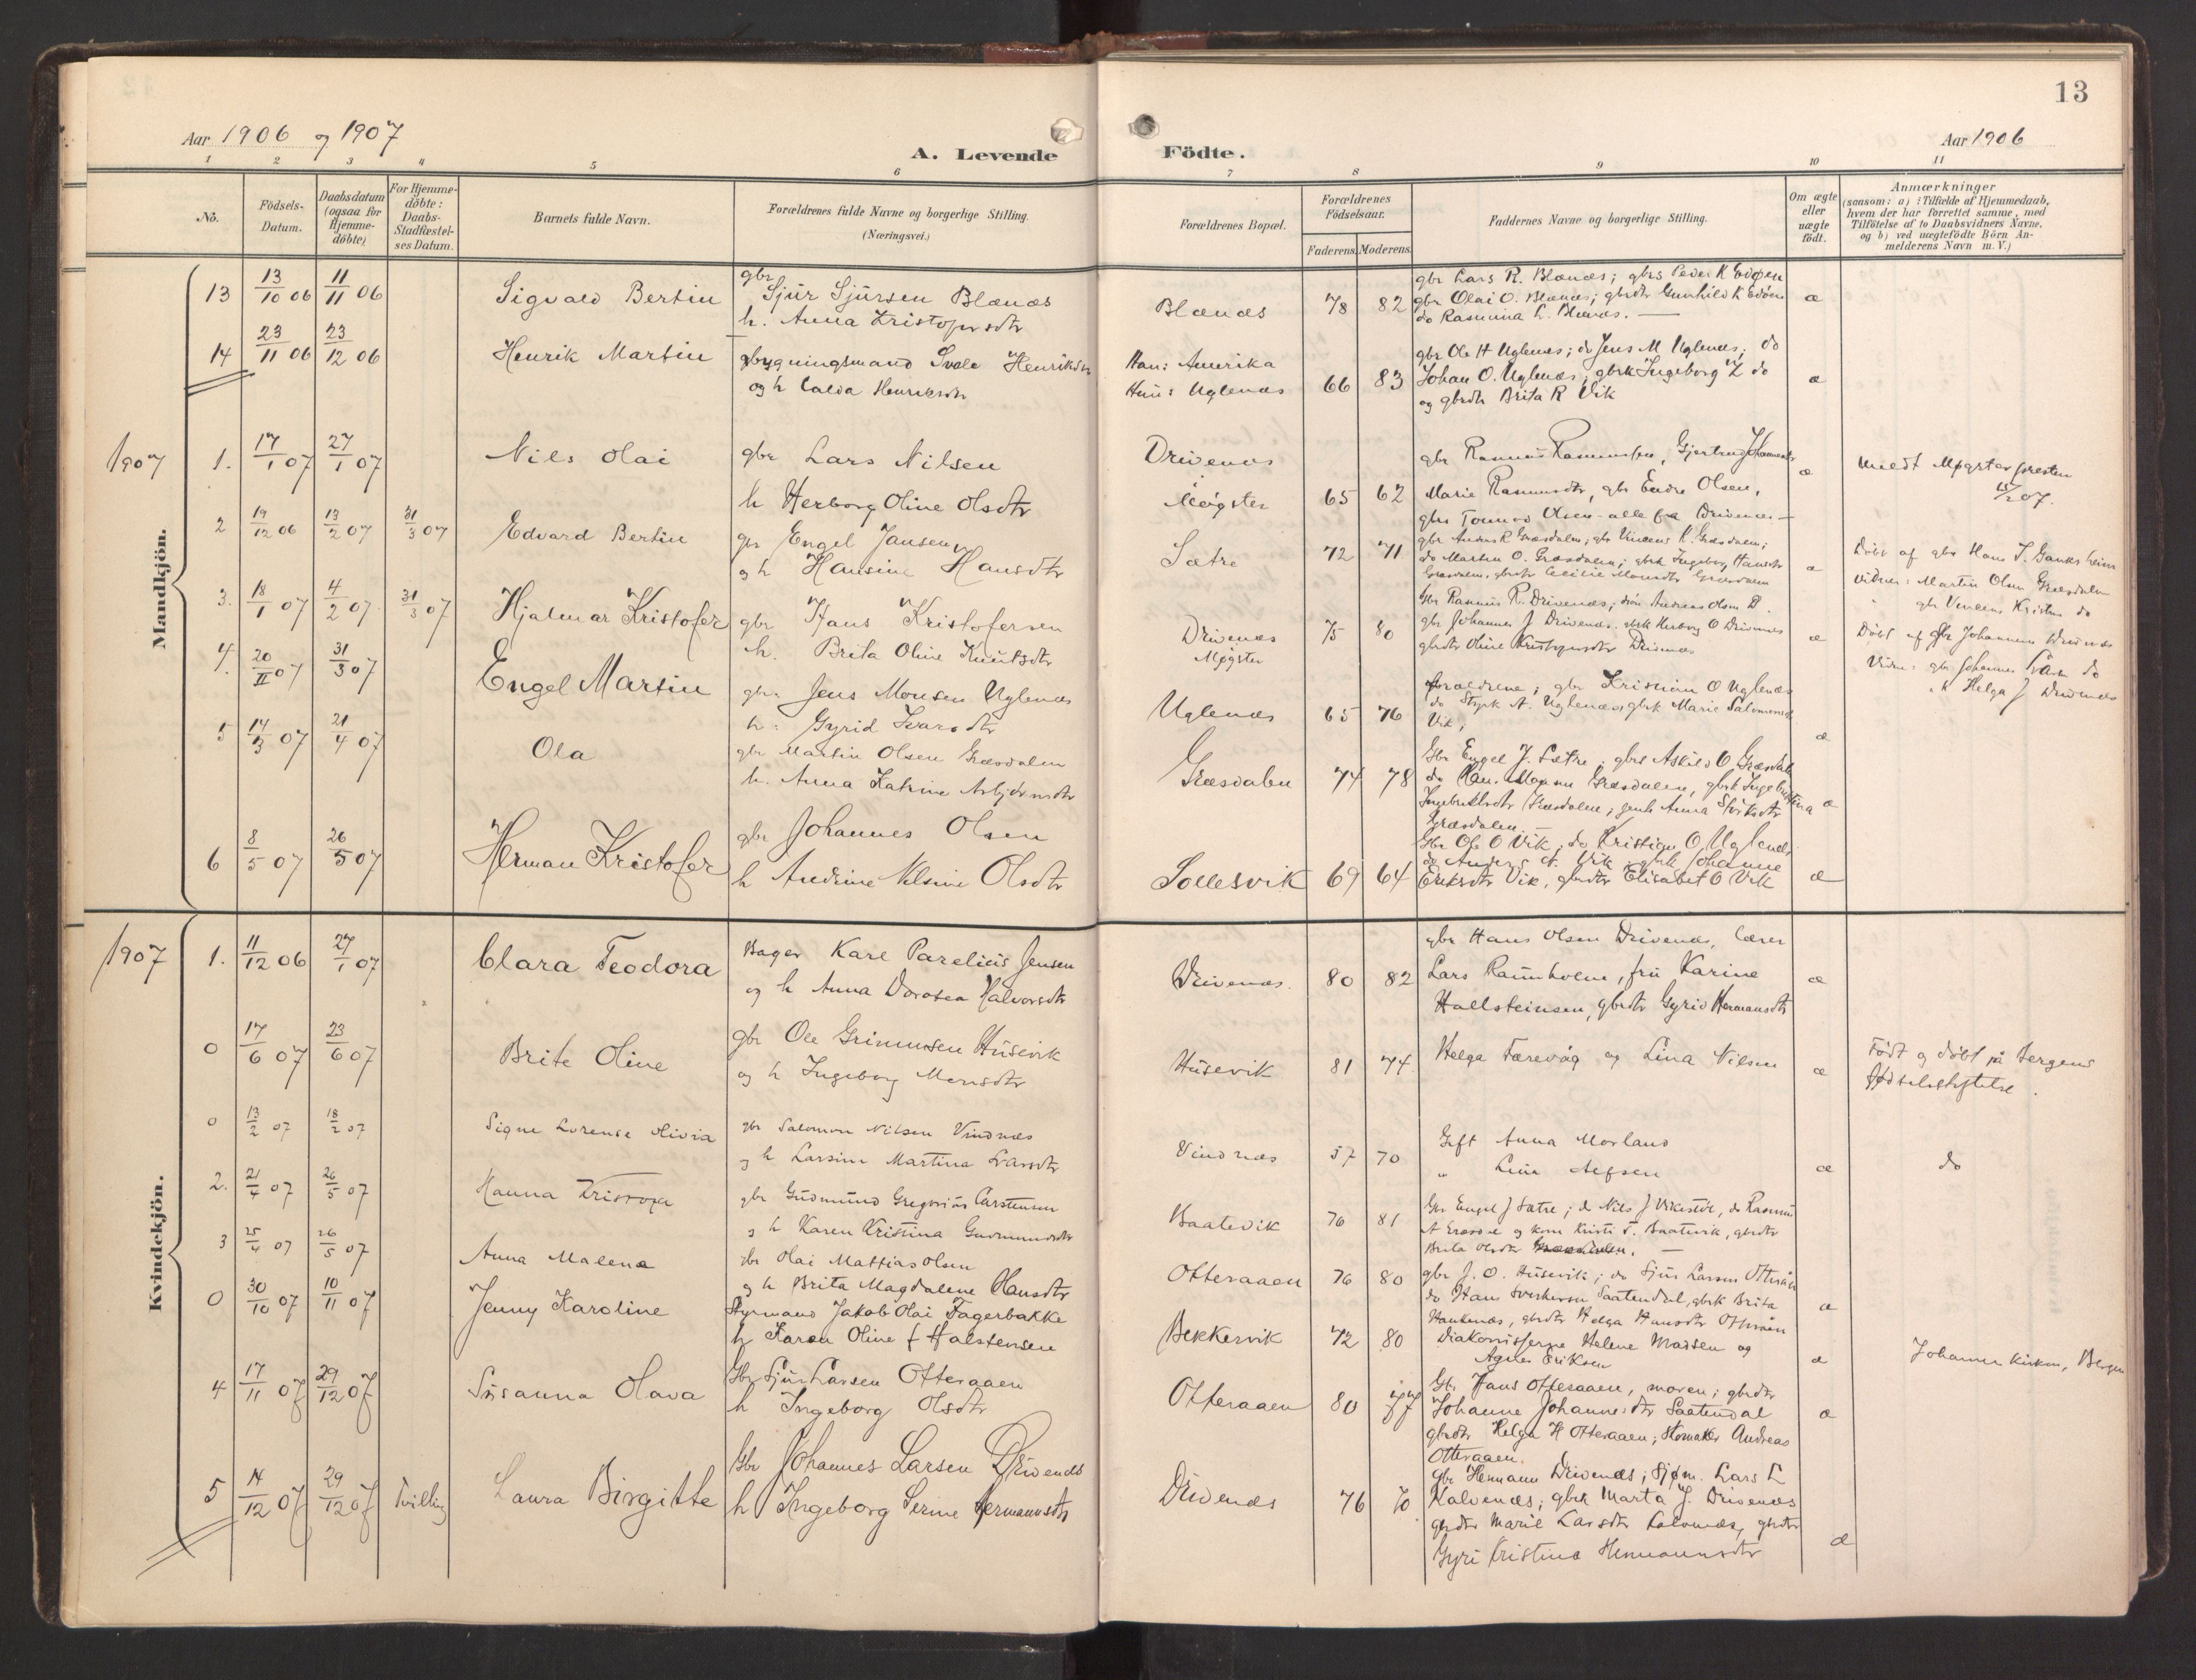 13
Aar 1906 og 1907
A. Levende
Födte.
Aar 1906
1 2 3 4 5 6 7 8 9 10 11
No.
Födsels-
Datum.
Daabsdatum
(ogsaa for
Hjemme-
döbte)
For Hjemme-
döbte:
Daabs-
Stadfæstel-
ses Datum.
Barnets fulde Navn.
Forældrenes fulde Navne og borgerlige Stilling.
(Næringsvei.)
Forældrenes Bopæl.
Forældrenes
Födselsaar.
Faderens. Moderens.
Faddernes Navne og borgerlige Stilling.
Om ægte
eller
uægte
födt.
Anmærkninger
(saasom: a) i Tilfælde af Hjemmedaab,
hvem der har forrettet samme, med
Tilföielse af to Daabsvidners Navne.
og b) ved uægtefödte Börn An-
melderens Navn m. V.)
Mandkjön.
13 13/10 06 11/11 06 Sigvald Bertin
gbr Sjur Sjursen Blænæs
h. Anna Kristofersdtr
Blænæs 78 82
gbr Lars R. Blænæs; gbrs Peder K
gbr Olai O. Blænæs; gbrdtr Gunhild K
do Rasmina L. Blænæs. —
æ
14 23/11 06 23/12 06 Henrik Martin
Henriksen
og h Henriksdtr
Han: Amerika
Hun: Uglenæs 66 83
gbr Ole H Uglenæs; do Jens M Uglenæs; do
Johan O. Uglenæs; gbrk Ingeborg L do
og gbrdtr Brita R Vik
æ
1907
1. 17/1 07 27/1 07 Nils Olai
gbr Lars Nilsen
h Herborg Oline Olsdtr
Drivenæs
i Møgster 65 62
gbr Rasmus Rasmussen, Gjertrud
Marie Rasmusdtr, gbr Endre Olsen,
gbrs Olsen - alle fra Drivenæs —
æ
meldt Møgsterpresten
15/2 07.
2 19/12 06 13/2 07 31/3 07 Edvard Bertin
gbr Engel Jansen
og h Hansine Hansdtr
Sætre 72 71
gbr Anders R Græsdalen; gbr Vincens K. Græsdalen;
do Martin O. Græsdalen; gbrk Ingeborg Hansdtr
Græsdalen, Cecilie Monsdtr Græsdalen
æ
Döbt af gbr Hans J.
Vidner: Martin Olsen Græsdalen
3. 18/1 07 4/2 07 31/3 07 Hjalmar Kristofer
gbr Hans Kristofersen
h. Brita Oline Knutsdtr
Drivenæs
Møgster 75 80
gbr Rasmus R. Drivenæs; Andreas Olsen D.
gbr Johannes J Drivenæs. gbrk Herborg O Drivenæs
gbrdtr Oline Kristofersdtr Drivenæs
æ
Döbt af gbr Johannes Drivenæs
Vidner: gbr Johannes do
Helga J Drivenæs
4. 20/II 07 31/3 07 Engel Martin
gbr Jens Monsen Uglenæs
h. Gyrid Ivarsdtr
Uglenæs 65 76
forældrene; gbr Kristian O Uglenæs
do Styrk A. Uglenæs gbrk Marie Salomonsdtr
Vik;
æ
5 14/3 07 21/4 07 Ola
gbr Martin Olsen Græsdalen
h. Anna Katrine Asbjørnsdtr
Græsdalen 74 78
Gbr Engel J. Sætre; gbrs Askild O Græsdal
do Monsen Græsdalen, gbrk Ingeb
Græsdalen; Anna
Græsdalen. —
æ
6 8/5 07 26/5 07 Herman Kristofer
gbr Johannes Olsen
h Andrine Nilsine Olsdtr
Sollesvik 69 64
Gbr Ole O Vik; do Kristian O Uglenæs
do Anders A. Vik gbrk Johanne
Eriksdtr Vik, gbrdtr Elisabet O Vik
æ
Kvindekjön.
1907
1. 11/12 06 27/1 07 Clara Teodora
Bager Karl Parelius Jensen
og h Anna Dorotea Halvorsdtr
Drivenæs. 80 82
gbr Hans Olsen Drivenæs, lærer
Lars Raunholm, fru Karine
Hallsteinsen, gbrdtr Gyrid Hermansdtr
æ
0 17/6 07 23/6 07 Brite Oline
gbr Ole Grimmsen Husevik
og h Ingeborg Monsdtr
Husevik 81 74
Helga Færevåg og Lina Nilsen
æ
Født og døbt på Bergens
fødselsstiftelse.
0 13/2 07 18/2 07 Signe Lorense Olivia
gbr Salomon Nilsen Vindnæs
og h Larsine Martina Larsdtr
Vindnæs 57 70
Gift Anna Morland
" Lina
æ
do
2. 21/4 07 26/5 07 Hanna Kristofa
gbr Gudmund Gregorius Carstensen
og h Karen Kristina Gudmundsdtr
Baatevik 76 81
Gbr Engel J Sætre; do Nils J Vikestöl, do Rasmus
og kone Kristi T. Baatevik, gbrdtr
Brita Olsdtr —
3 25/4 07 26/5 07 Anna Malena
gbr Olai Mattias Olsen
og h Brita Magdalene Hansdtr
Otteraaen 76 80
gbr J. O. Husevik; do Sjur Larsen Otteraaen
do Hans Saatendal, gbrk Brita
Haukenæs, gbrdtr Helga Hansdtr Otteraaen
æ
0 30/10 07 10/11 07 Jenny Karoline
Styrmand Jakob Olai Fagerbakke
h Karen Oline f Halstensen
Bekkervik 72 80
Diakonisserne Helene Madsen og
Agnes Eriksen
æ
Johannes kirken, Bergen
4 17/11 07 29/12 07 Susanna Olava
Gbr Sjur Larsen Otteraaen
h Ingeborg Olsdtr
Otteraaen 80 77
Gbr Hans Otteraaen, moren; gbrdtr
Johanne Johannesdtr Saatendal
gbrdtr Helga H Otteraaen; Skomaker Andreas
Otteraaen.
æ
5 14/12 07 29/12 07 Tvilling Laura Birgitte
Gbr Johannes Larsen Drivenæs
h Ingeborg Serine Hermannsdtr
Drivenæs 76 70
gbr Hemann Drivenæs; Sjøm. Lars L
Kalvenæs; gbrk Marta J. Drivenæs
gbrdtr Marie Larsdtr gbrdtr
Gyri Kristina Hermannsdtr
æ